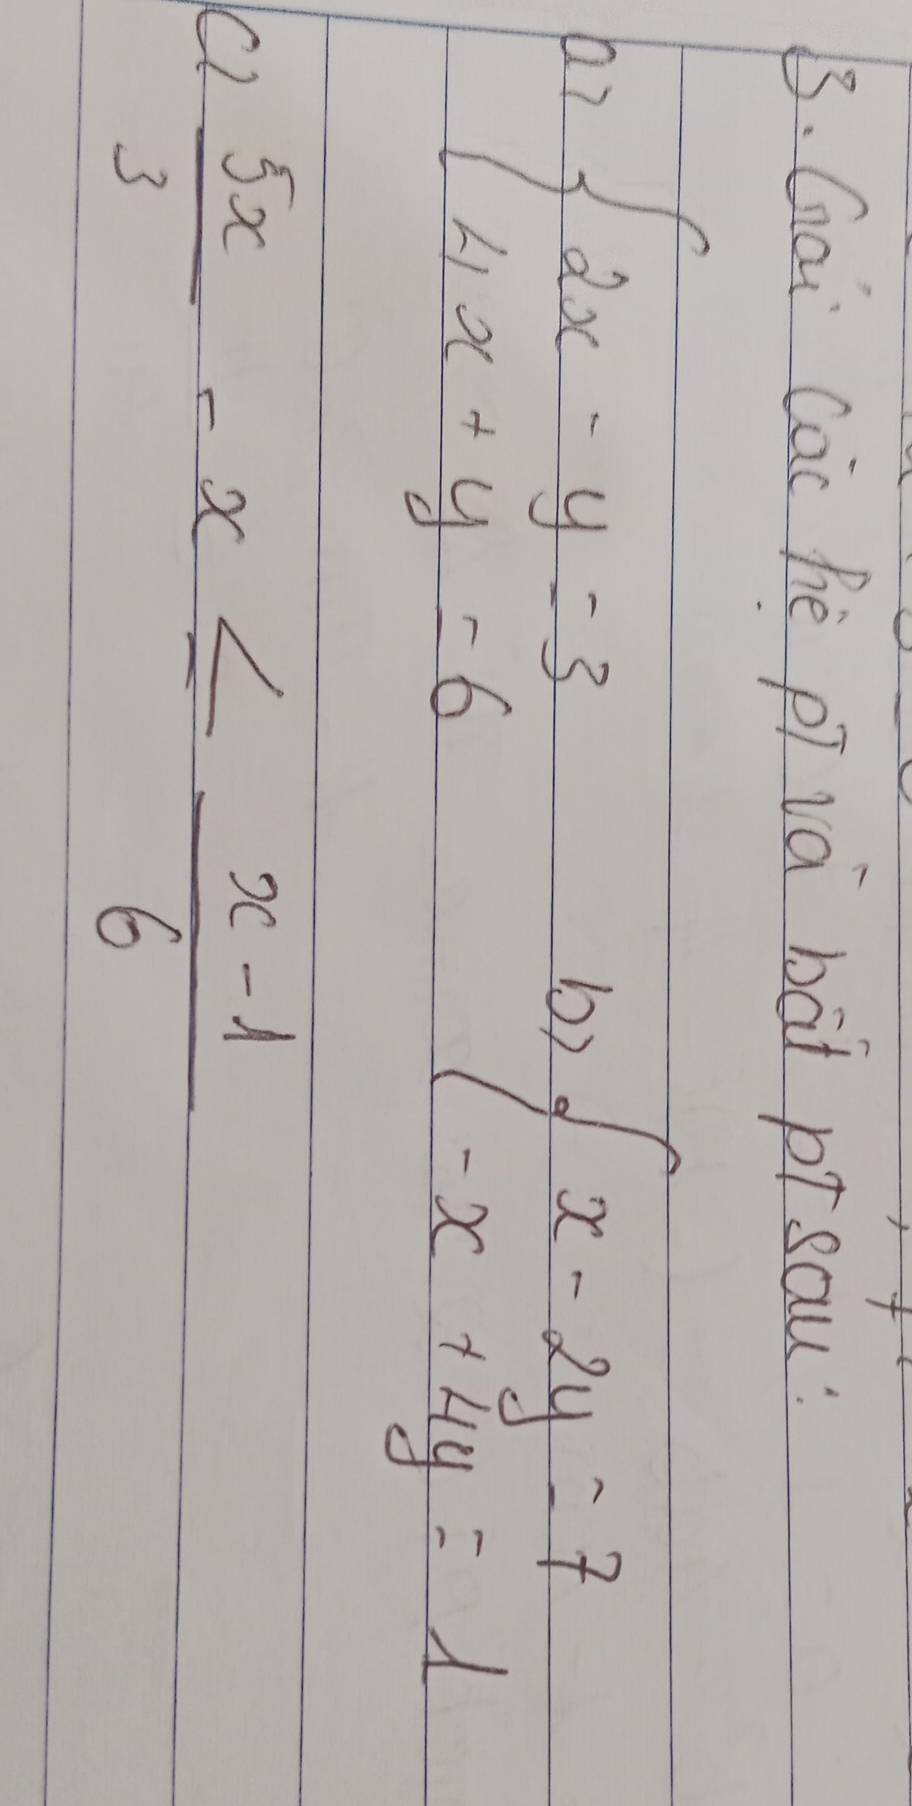 3. Giải các hệ pT và bất pT sau:
a) { 2x - y = 3   b) { x - 2y = 7
4x + y = 6   -x + 4y = 1
c) 5x/3 - x ≤ x - 1/6